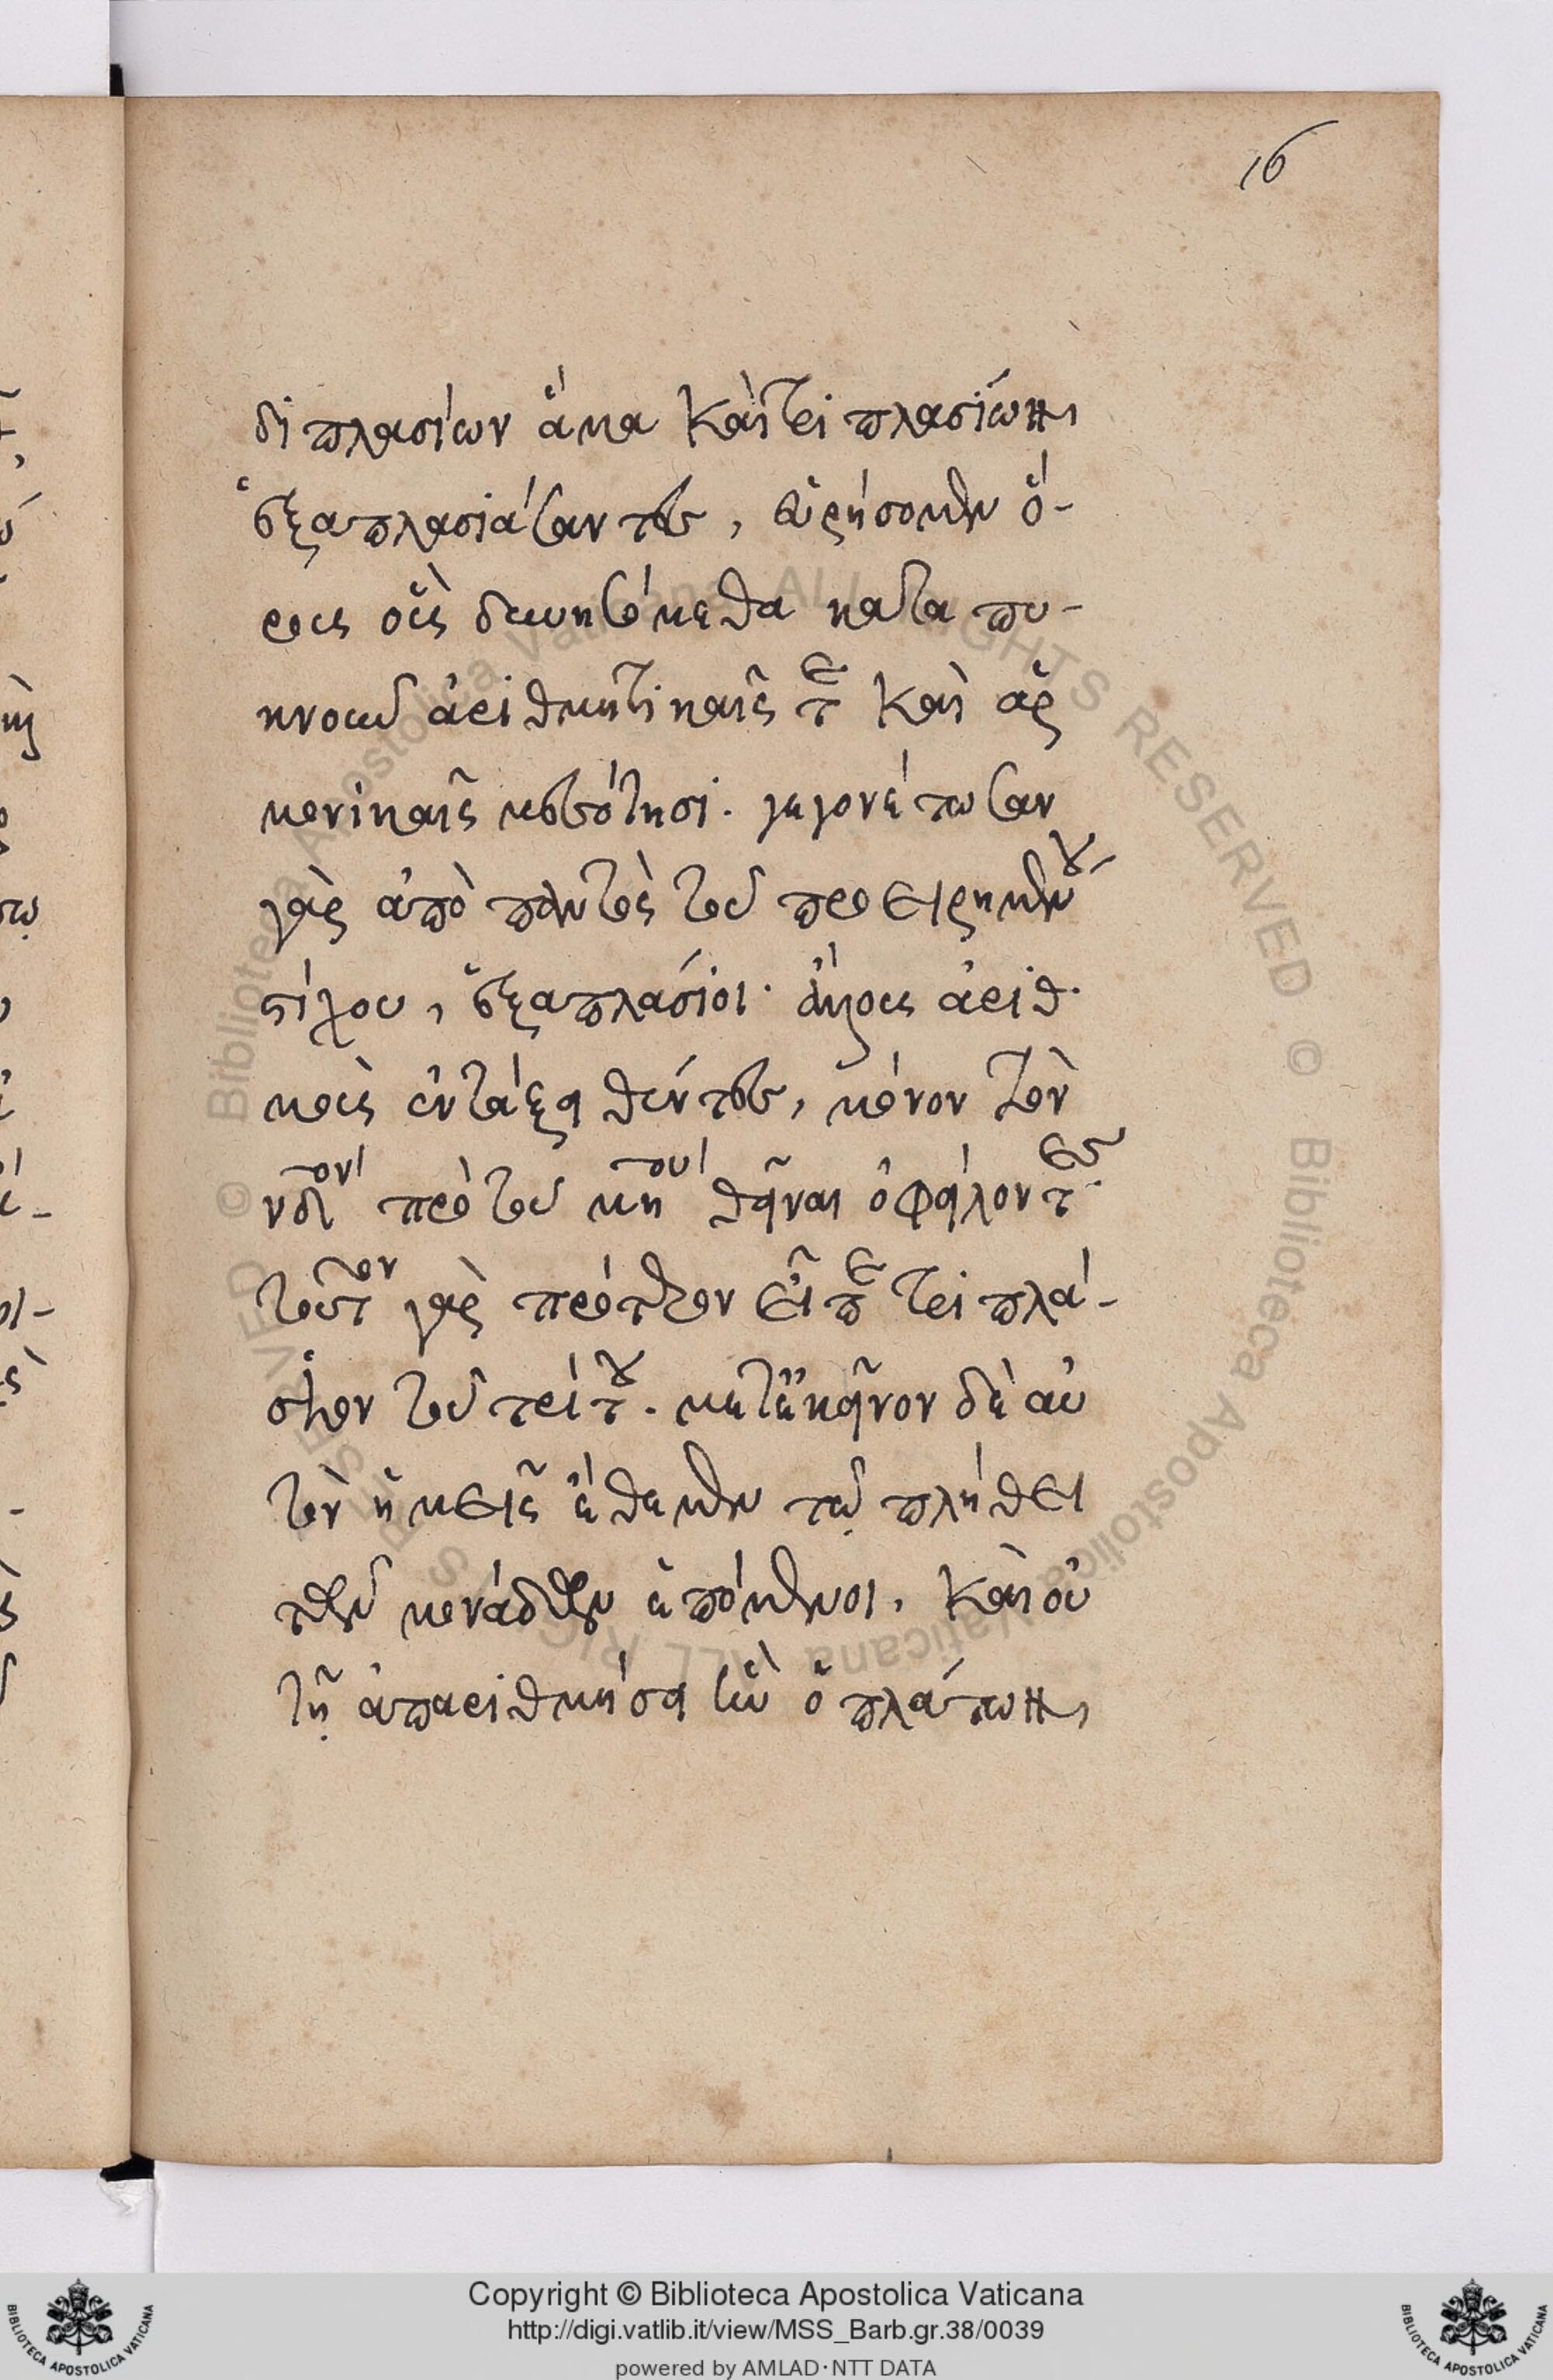 16
διπλασίων ἅμα καὶ τριπλασίων,
ἑξαπλασιάσαντες, εὑρήσομεν ὅ-
ρους οὓς δεδυνησόμεθα καταπυ-
κνοῦν ἀριθμητικαῖς τε καὶ ἁρ
μονικαῖς μεσότησι. γεγονέτωσαν
γὰρ ἀπὸ παντὸς τοῦ προειρημένου
στίχου, ἑξαπλάσιοι. ὅλους ἀριθ
μοὺς ἐνταῦθα θέντες, μόνον τὸν
πρὸ τοῦ θεῖναι ὀφείλοντες.
τοῦτον γὰρ πρότερον εἶπε τριπλά-
σιον τοῦ τρίτου. μετ' ἐκεῖνον δὲ αὐ
τὸν ἡμεῖς ἐθέμεν τῷ πλήθει
τῶν μονάδων ἑπόμενοι. καὶ οὐ
τῇ ἀπαριθμήσει ὁ πλάτων,
Copyright © Biblioteca Apostolica Vaticana
http://digi.vatlib.it/view/MSS_Barb.gr.38/0039
powered by AMLAD·NTT DATA